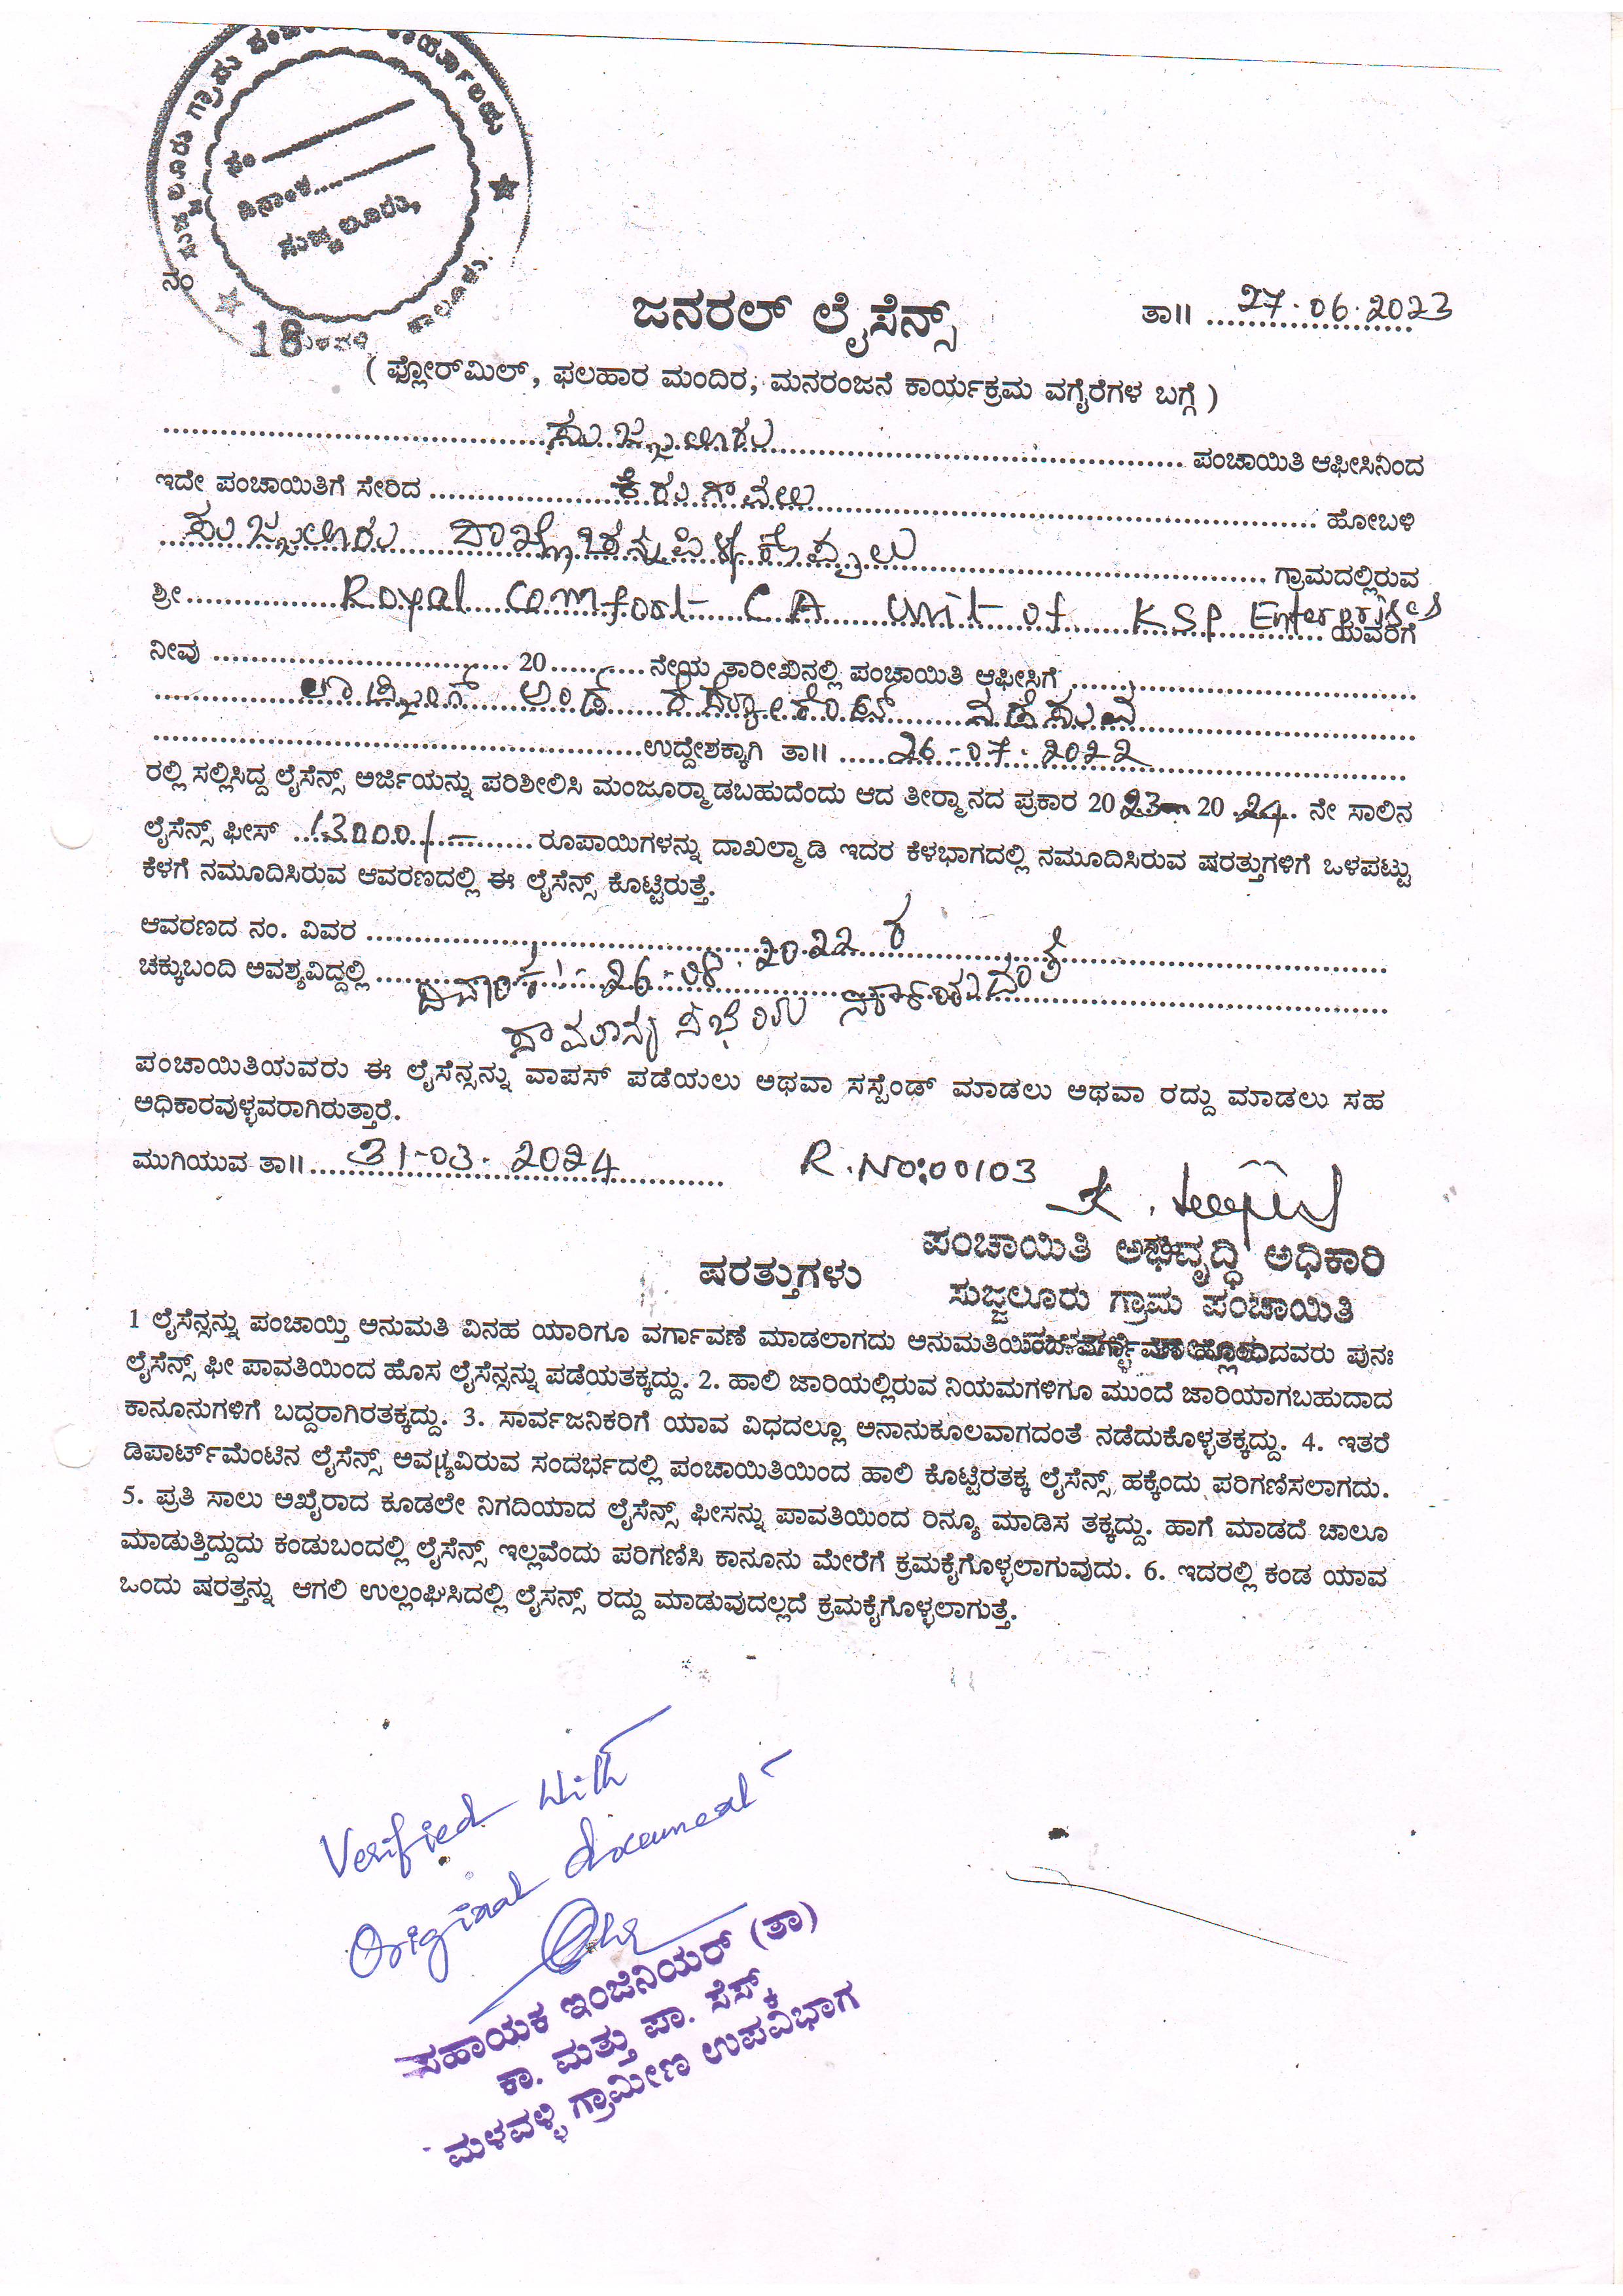 ಸುಜ್ಜಲೂರು ಗ್ರಾಮ
ನಂ
ದಿನಾಂಕ
ಸುಜ್ಜಲೂರು,
ನಂ 18
ಜನರಲ್ ಲೈಸೆನ್ಸ್
ತಾ॥ 27.06.2023
( ಫ್ಲೋರ್‌ಮಿಲ್, ಫಲಹಾರ ಮಂದಿರ, ಮನರಂಜನೆ ಕಾರ್ಯಕ್ರಮ ವಗೈರೆಗಳ ಬಗ್ಗೆ )
ಸುಜ್ಜಲೂರು ಪಂಚಾಯಿತಿ ಆಫೀಸಿನಿಂದ
ಇದೇ ಪಂಚಾಯಿತಿಗೆ ಸೇರಿದ ಕಿರುಗಾವಲು ಹೋಬಳಿ
ಸುಜ್ಜಲೂರು ದಾಖ್ಲೆ ಗ್ರಾಮದಲ್ಲಿರುವ
ಶ್ರೀ Royal Comfort CA unit of KSP Enterprises ಯವರಿಗೆ
ನೀವು 20 ನೇಯ ತಾರೀಖಿನಲ್ಲಿ ಪಂಚಾಯಿತಿ ಆಫೀಸಿಗೆ
ಲಾಡ್ಜಿಂಗ್ ಅಂಡ್ ನಡೆಸುವ
ಉದ್ದೇಶಕ್ಕಾಗಿ ತಾ॥ 26-07-2022
ರಲ್ಲಿ ಸಲ್ಲಿಸಿದ್ದ ಲೈಸೆನ್ಸ್ ಅರ್ಜಿಯನ್ನು ಪರಿಶೀಲಿಸಿ ಮಂಜೂರ್‍ಮಾಡಬಹುದೆಂದು ಆದ ತೀರ್‍ಮಾನದ ಪ್ರಕಾರ 2023 20 24 ನೇ ಸಾಲಿನ
ಲೈಸೆನ್ಸ್ ಫೀಸ್ 13000/- ರೂಪಾಯಿಗಳನ್ನು ದಾಖಲ್ಮಾಡಿ ಇದರ ಕೆಳಭಾಗದಲ್ಲಿ ನಮೂದಿಸಿರುವ ಷರತ್ತುಗಳಿಗೆ ಒಳಪಟ್ಟು
ಕೆಳಗೆ ನಮೂದಿಸಿರುವ ಆವರಣದಲ್ಲಿ ಈ ಲೈಸೆನ್ಸ್ ಕೊಟ್ಟಿರುತ್ತೆ.
ಆವರಣದ ನಂ. ವಿವರ
ಚಕ್ಕುಬಂದಿ ಅವಶ್ಯವಿದ್ದಲ್ಲಿ ದಿನಾಂಕ:- 26-08-2022 ರ
ಸಾಮಾನ್ಯ ಸಭೆಯ
ಪಂಚಾಯಿತಿಯವರು ಈ ಲೈಸೆನ್ಸನ್ನು ವಾಪಸ್ ಪಡೆಯಲು ಅಥವಾ ಸಸ್ಪೆಂಡ್ ಮಾಡಲು ಅಥವಾ ರದ್ದು ಮಾಡಲು ಸಹ
ಅಧಿಕಾರವುಳ್ಳವರಾಗಿರುತ್ತಾರೆ.
ಮುಗಿಯುವ ತಾ॥ 31-03-2024
R.No:00103
ಪಂಚಾಯಿತಿ ಅಭಿವೃದ್ಧಿ ಅಧಿಕಾರಿ
ಸುಜ್ಜಲೂರು ಗ್ರಾಮ ಪಂಚಾಯಿತಿ
ಷರತ್ತುಗಳು
1 ಲೈಸೆನ್ಸನ್ನು ಪಂಚಾಯ್ತಿ ಅನುಮತಿ ವಿನಹ ಯಾರಿಗೂ ವರ್ಗಾವಣೆ ಮಾಡಲಾಗದು ಅನುಮತಿಯಿಂದ ಹೊಂದಿದವರು ಪುನಃ
ಲೈಸೆನ್ಸ್ ಫೀ ಪಾವತಿಯಿಂದ ಹೊಸ ಲೈಸೆನ್ಸನ್ನು ಪಡೆಯತಕ್ಕದ್ದು. 2. ಹಾಲಿ ಜಾರಿಯಲ್ಲಿರುವ ನಿಯಮಗಳಿಗೂ ಮುಂದೆ ಜಾರಿಯಾಗಬಹುದಾದ
ಕಾನೂನುಗಳಿಗೆ ಬದ್ದರಾಗಿರತಕ್ಕದ್ದು. 3. ಸಾರ್ವಜನಿಕರಿಗೆ ಯಾವ ವಿಧದಲ್ಲೂ ಅನಾನುಕೂಲವಾಗದಂತೆ ನಡೆದುಕೊಳ್ಳತಕ್ಕದ್ದು. 4. ಇತರೆ
ಡಿಪಾರ್ಟ್‌ಮೆಂಟಿನ ಲೈಸೆನ್ಸ್ ಅವಶ್ಯವಿರುವ ಸಂದರ್ಭದಲ್ಲಿ ಪಂಚಾಯಿತಿಯಿಂದ ಹಾಲಿ ಕೊಟ್ಟಿರತಕ್ಕ ಲೈಸೆನ್ಸ್ ಹಕ್ಕೆಂದು ಪರಿಗಣಿಸಲಾಗದು.
5. ಪ್ರತಿ ಸಾಲು ಅಖೈರಾದ ಕೂಡಲೇ ನಿಗದಿಯಾದ ಲೈಸೆನ್ಸ್ ಫೀಸನ್ನು ಪಾವತಿಯಿಂದ ರಿನ್ಯೂ ಮಾಡಿಸ ತಕ್ಕದ್ದು. ಹಾಗೆ ಮಾಡದೆ ಚಾಲೂ
ಮಾಡುತ್ತಿದ್ದುದು ಕಂಡುಬಂದಲ್ಲಿ ಲೈಸೆನ್ಸ್ ಇಲ್ಲವೆಂದು ಪರಿಗಣಿಸಿ ಕಾನೂನು ಮೇರೆಗೆ ಕ್ರಮಕೈಗೊಳ್ಳಲಾಗುವುದು. 6. ಇದರಲ್ಲಿ ಕಂಡ ಯಾವ
ಒಂದು ಷರತ್ತನ್ನು ಆಗಲಿ ಉಲ್ಲಂಘಿಸಿದಲ್ಲಿ ಲೈಸನ್ಸ್ ರದ್ದು ಮಾಡುವುದಲ್ಲದೆ ಕ್ರಮಕೈಗೊಳ್ಳಲಾಗುತ್ತೆ.
Verified with
Original document
ಸಹಾಯಕ ಇಂಜಿನಿಯರ್ (ತಾ)
ಕಾ. ಮತ್ತು ಪಾ. ಸೆಸ್ಕ್
ಮಳವಳ್ಳಿ ಗ್ರಾಮೀಣ ಉಪವಿಭಾಗ